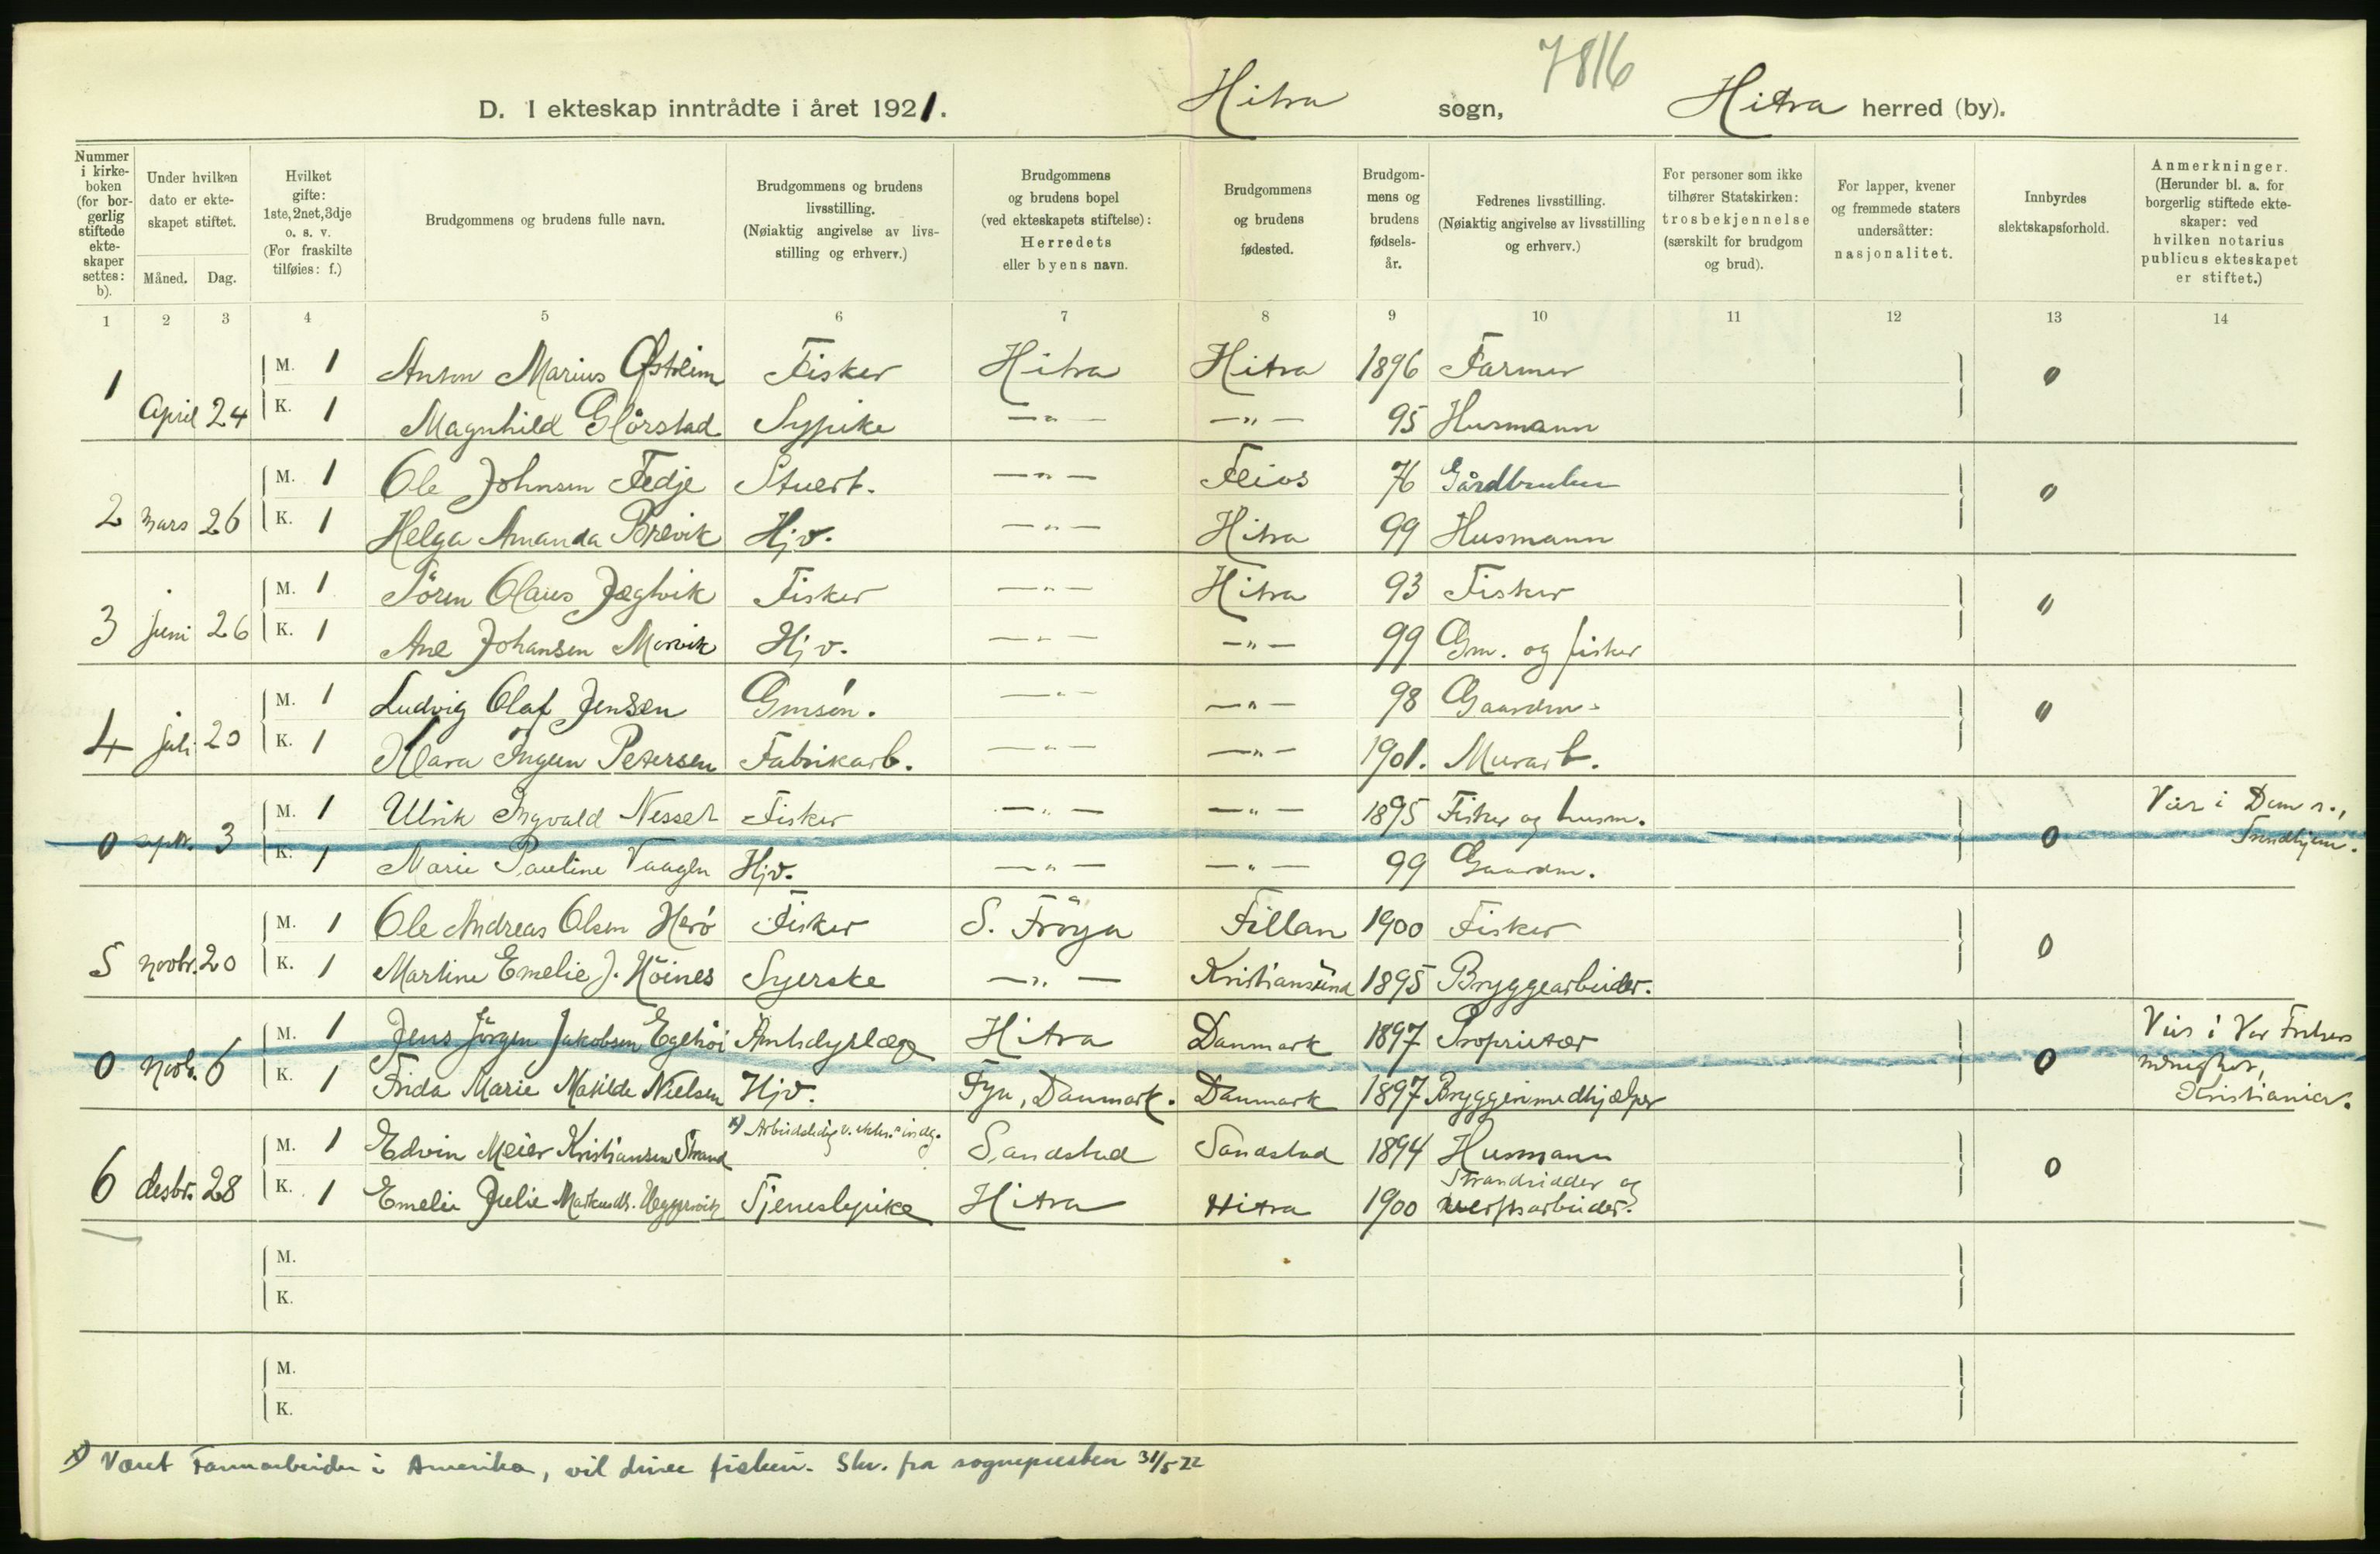 7816
D. I ekteskap inntrådte i året 1921. Hitra sogn, Hitra herred (by).
Nummer i kirke-boken (for bor-gerlig stiftede ekte-skaper settes: b).
Under hvilken dato er ekte-skapet stiftet.
Måned. Dag.
Hvilket gifte: 1ste, 2net, 3dje o. s. v. (For fraskilte tilføies: f.)
Brudgommens og brudens fulle navn.
Brudgommens og brudens livsstilling. (Nøiaktig angivelse av livs-stilling og erhverv.)
Brudgommens og brudens bopel (ved ekteskapets stiftelse): Herredets eller byens navn.
Brudgommens og brudens fødested.
Brudgom-mens og brudens fødsels-år.
Fedrenes livsstilling. (Nøiaktig angivelse av livsstilling og erhverv.)
For personer som ikke tilhører Statskirken: trosbekjennelse (særskilt for brudgom og brud).
For lapper, kvener og fremmede staters undersåtter: nasjonalitet.
Innbyrdes slektskapsforhold.
Anmerkninger. (Herunder bl. a. for borgerlig stiftede ekte-skaper: ved hvilken notarius publicus ekteskapet er stiftet.)
1 2 3 4 5 6 7 8 9 10 11 12 13 14
M. 1 Anton Marius Østreim Fisker Hitra Hitra 1896 Farmer
1 April 24 K. 1 Magnhild Glørstad Sypike —"— —"— 95 Husmann 0
M. 1 Ole Johnsen Fedje Stuert. —"— Feios 76 Gårdbruker
2 mars 26 K. 1 Helga Amanda Brevik Hjv. —"— Hitra 99 Husmann 0
M. 1 Sören Olaus Jægtvik Fisker —"— Hitra 93 Fisker
3 juni 26 K. 1 Ane Johansen Morvik Hjv. —"— —"— 99 Gm. og fisker 0
M. 1 Ludvig Olaf Jensen Gmsøn. —"— —"— 98 Gaardm.
4 juli 20 K. 1 Klara Ingeen Petersen Fabrikarb. —"— —"— 1901. Murarb. 0
M. 1 Ulrik Ingvald Nesset Fisker —"— —"— 1895 Fisker og husm. Vier i Dom s.,
0 septr. 3 K. 1 Marie Pauline Vaagen Hjv. —"— —"— 99 Gaardm. 0 Trondhjem.
M. 1 Ole Andreas Olsen Herö Fisker S. Fröya Fillan 1900 Fisker
5 novbr. 20 K. 1 Martine Emelie J. Höines Syerske —"— Kristiansund 1895 Bryggearbeider. 0
M. 1 Jens Jörgen Jakobsen Egehöi Amtsdyrlæge Hitra Danmark 1897 Proprietær Vier i Vor Frelsers
0 novb. 6 K. 1 Frida Marie Matilde Nielsen Hjv. Fyn, Danmark. Danmark 1897 Bryggerimedhjælper 0 menighet, Kristiania.
M. 1 Edvin Meier Kristiansen Strand x) Arbeidsledig Sandstad Sandstad 1894 Husmann
6 desbr. 28 K. 1 Emelie Julie Tjenestepike Hitra Hitra 1900 Strandsidder og verftsarbeider. 0
M.
K.
M.
K.
x) Været Farmarbeider i Amerika, vil drive fiskeri. Skr. fra sognepresten 31/5 22